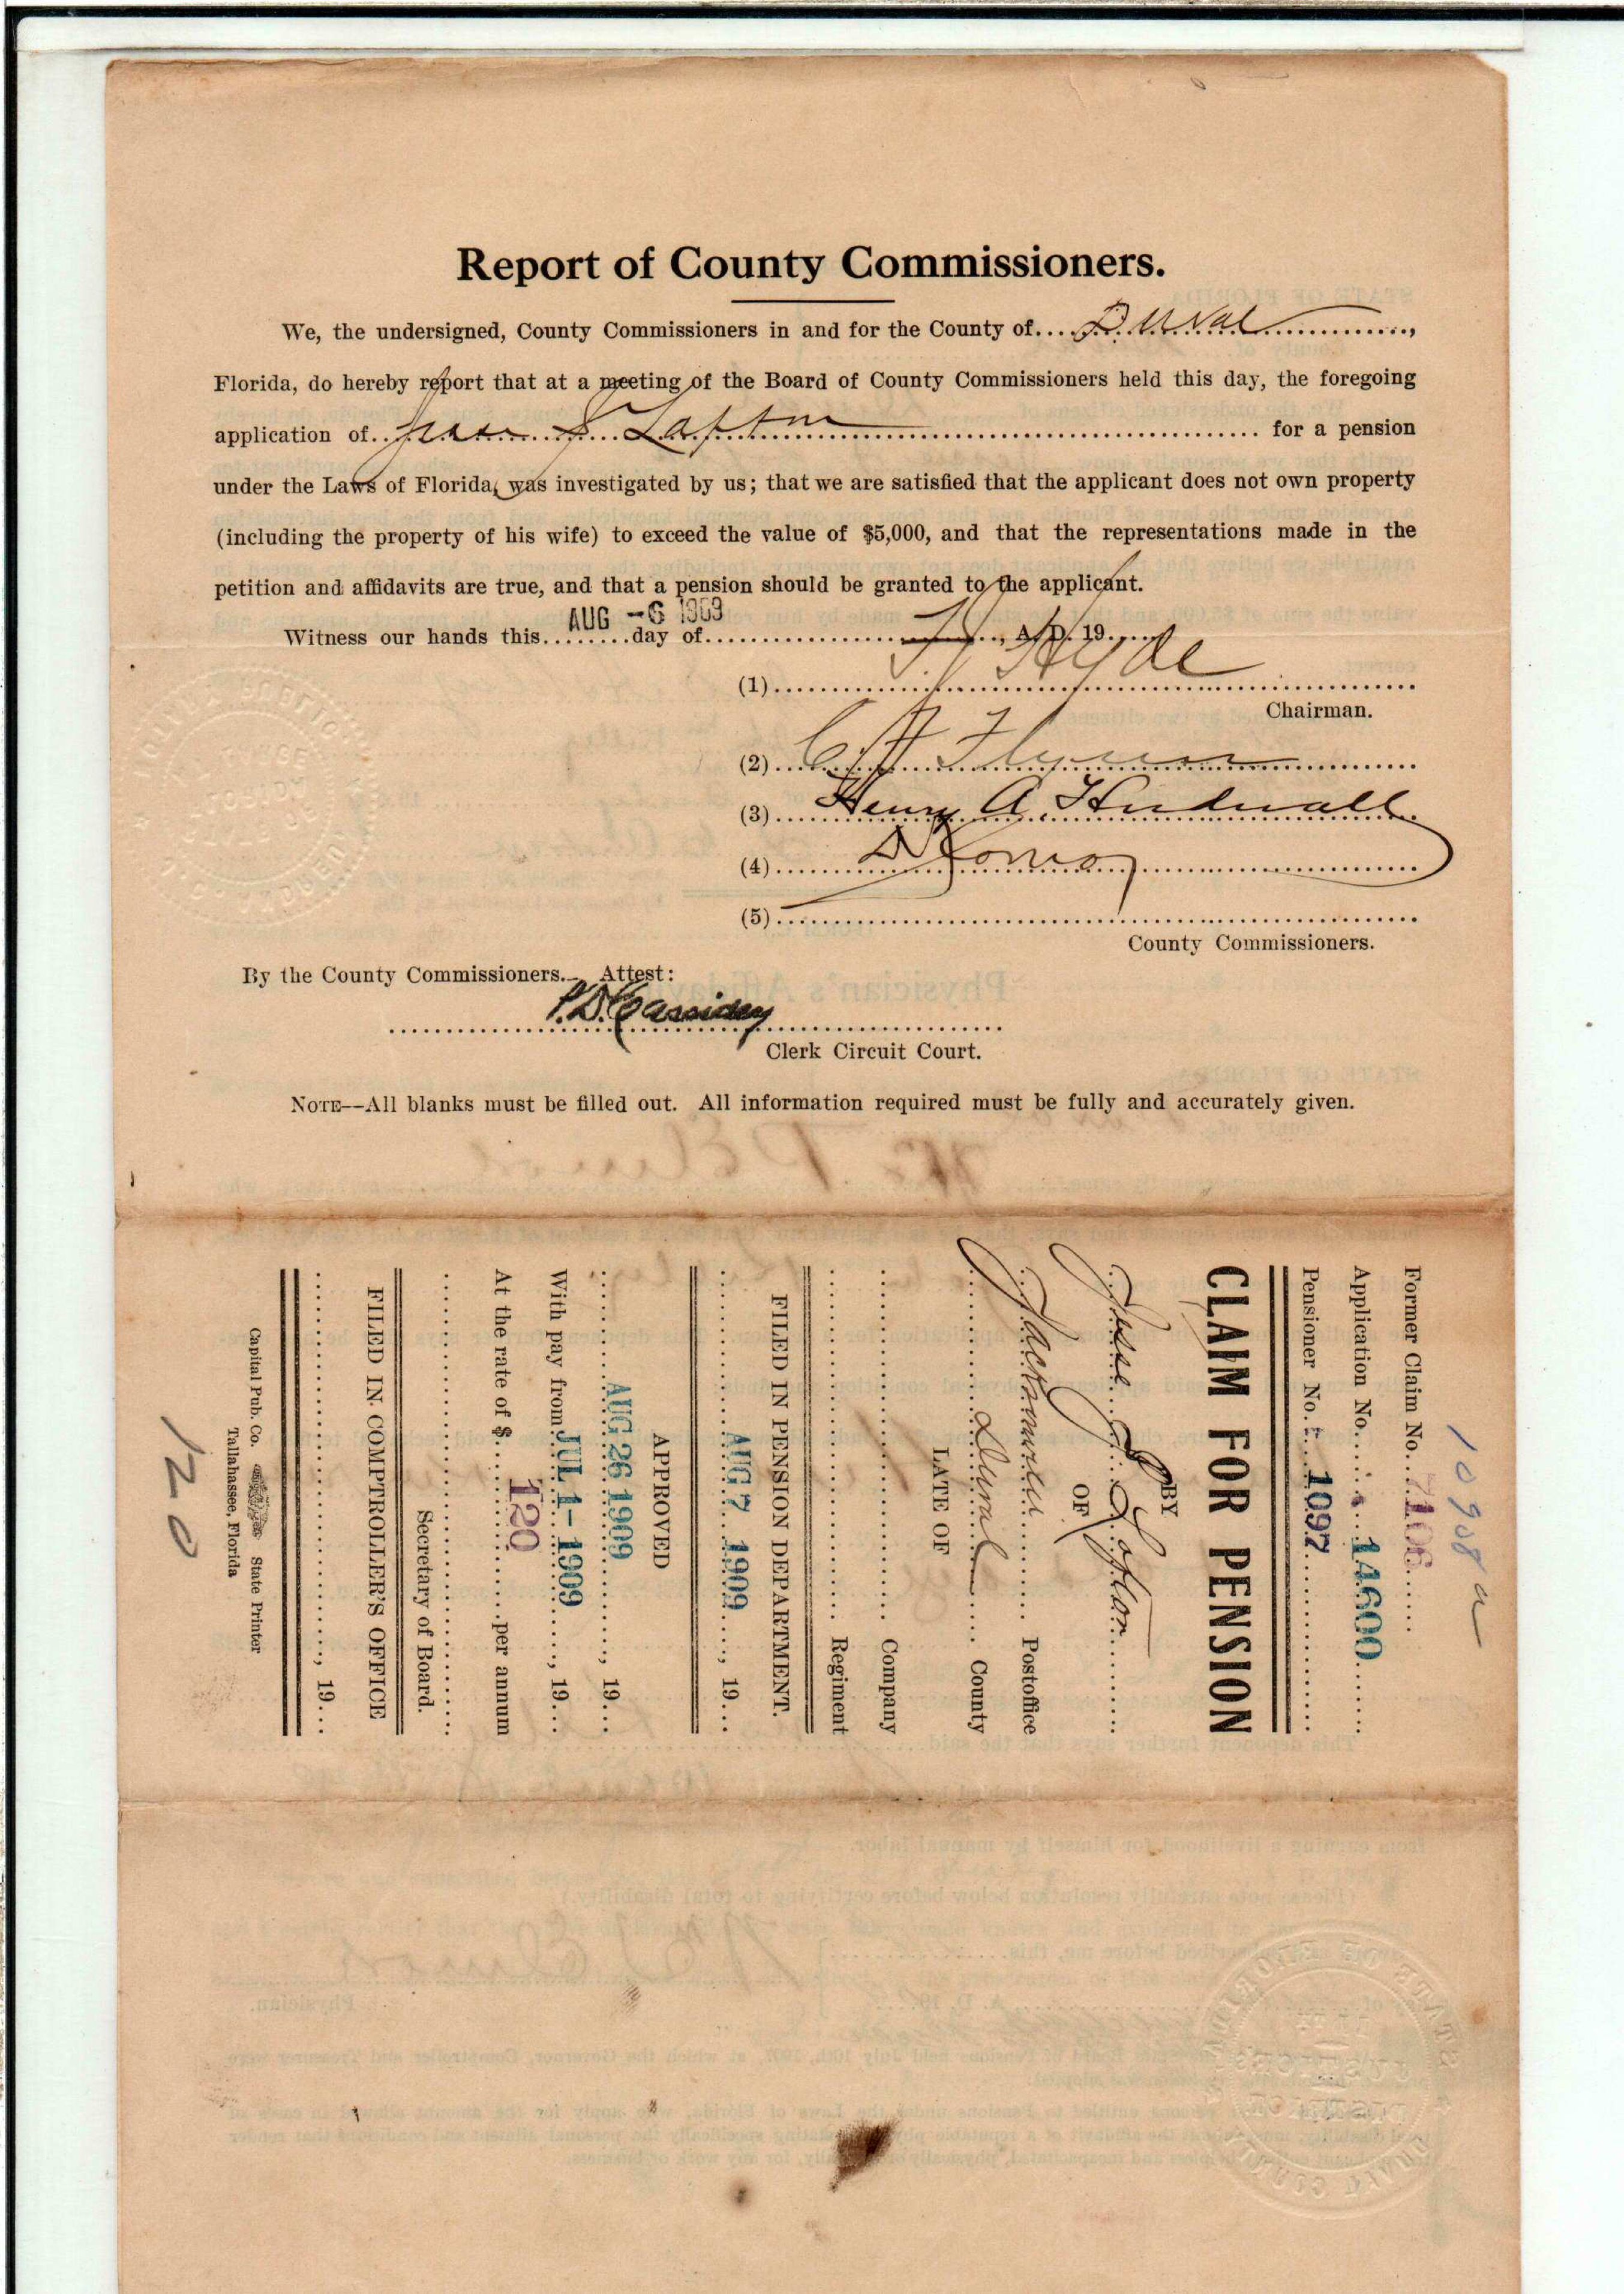 Report of County Commissioners.
We, the undersigned, County Commissioners in and for the County of....Duval..............,
Florida, do hereby report that at a meeting of the Board of County Commissioners held this day, the foregoing
application of..Jesse S Lofton.................... for a pension
under the Laws of Florida, was investigated by us; that we are satisfied that the applicant does not own property
(including the property of his wife) to exceed the value of $5,000, and that the representations made in the
petition and affidavits are true, and that a pension should be granted to the applicant.
AUG -6 1909
Witness our hands this........day of...................., A. D. 19......
(1)..........Hyde..........
Chairman.
(2)....................
(3)....Henry A. Hudnall
(4)....................
(5)....................
County Commissioners.
By the County Commissioners. Attest:
P. D. Cassidey
Clerk Circuit Court.
NOTE--All blanks must be filled out. All information required must be fully and accurately given.
10908
Former Claim No...7106......
Application No......14600........
Pensioner No.....1097............
CLAIM FOR PENSION
BY
Jesse S. Lofton
OF
Jacksonville.......... Postoffice
Duval.......... County
LATE OF
.................... Company
.................... Regiment
FILED IN PENSION DEPARTMENT.
AUG 7 1909......, 19...
APPROVED
AUG 26 1909......, 19...
With pay from JUL 1- 1909......, 19...
At the rate of $...120......per annum
....................
Secretary of Board.
FILED IN COMPTROLLER'S OFFICE
...................., 19...
Capital Pub. Co. State Printer
Tallahassee, Florida
120